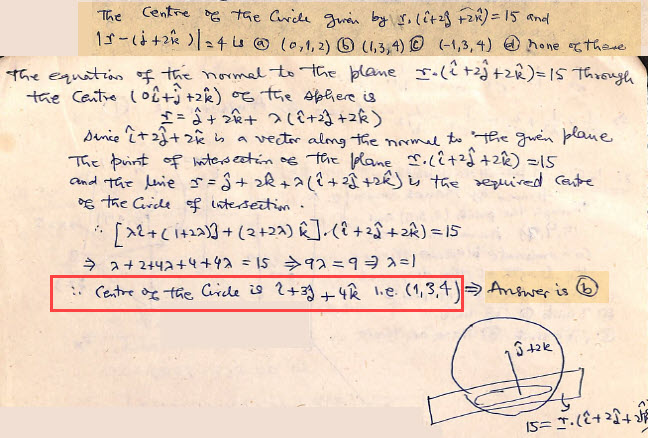 The Centre of the Circle given by r.(î+2ĵ+2k̂)=15 and
|r-(ĵ+2k̂)|=4 is (a) (0,1,2) (b) (1,3,4) (c) (-1,3,4) (d) none of these
The equation of the normal to the plane r.(î+2ĵ+2k̂)=15 through
the Centre (0î+ĵ+2k̂) of the sphere is
r = ĵ+2k̂+ λ(î+2ĵ+2k̂)
Since î+2ĵ+2k̂ is a vector along the normal to the given plane
The point of intersection of the plane r.(î+2ĵ+2k̂)=15
and the line r=ĵ+2k̂+λ(î+2ĵ+2k̂) is the required Centre
of the Circle of intersection.
∴ [λî+(1+2λ)ĵ+(2+2λ)k̂].(î+2ĵ+2k̂)=15
⇒ λ+2+4λ+4+4λ = 15 ⇒ 9λ=9 ⇒ λ=1
∴ Centre of the Circle is î+3ĵ+4k̂ i.e. (1,3,4) ⇒ Answer is (b)
ĵ+2k
15= r.(î+2ĵ+2k̂